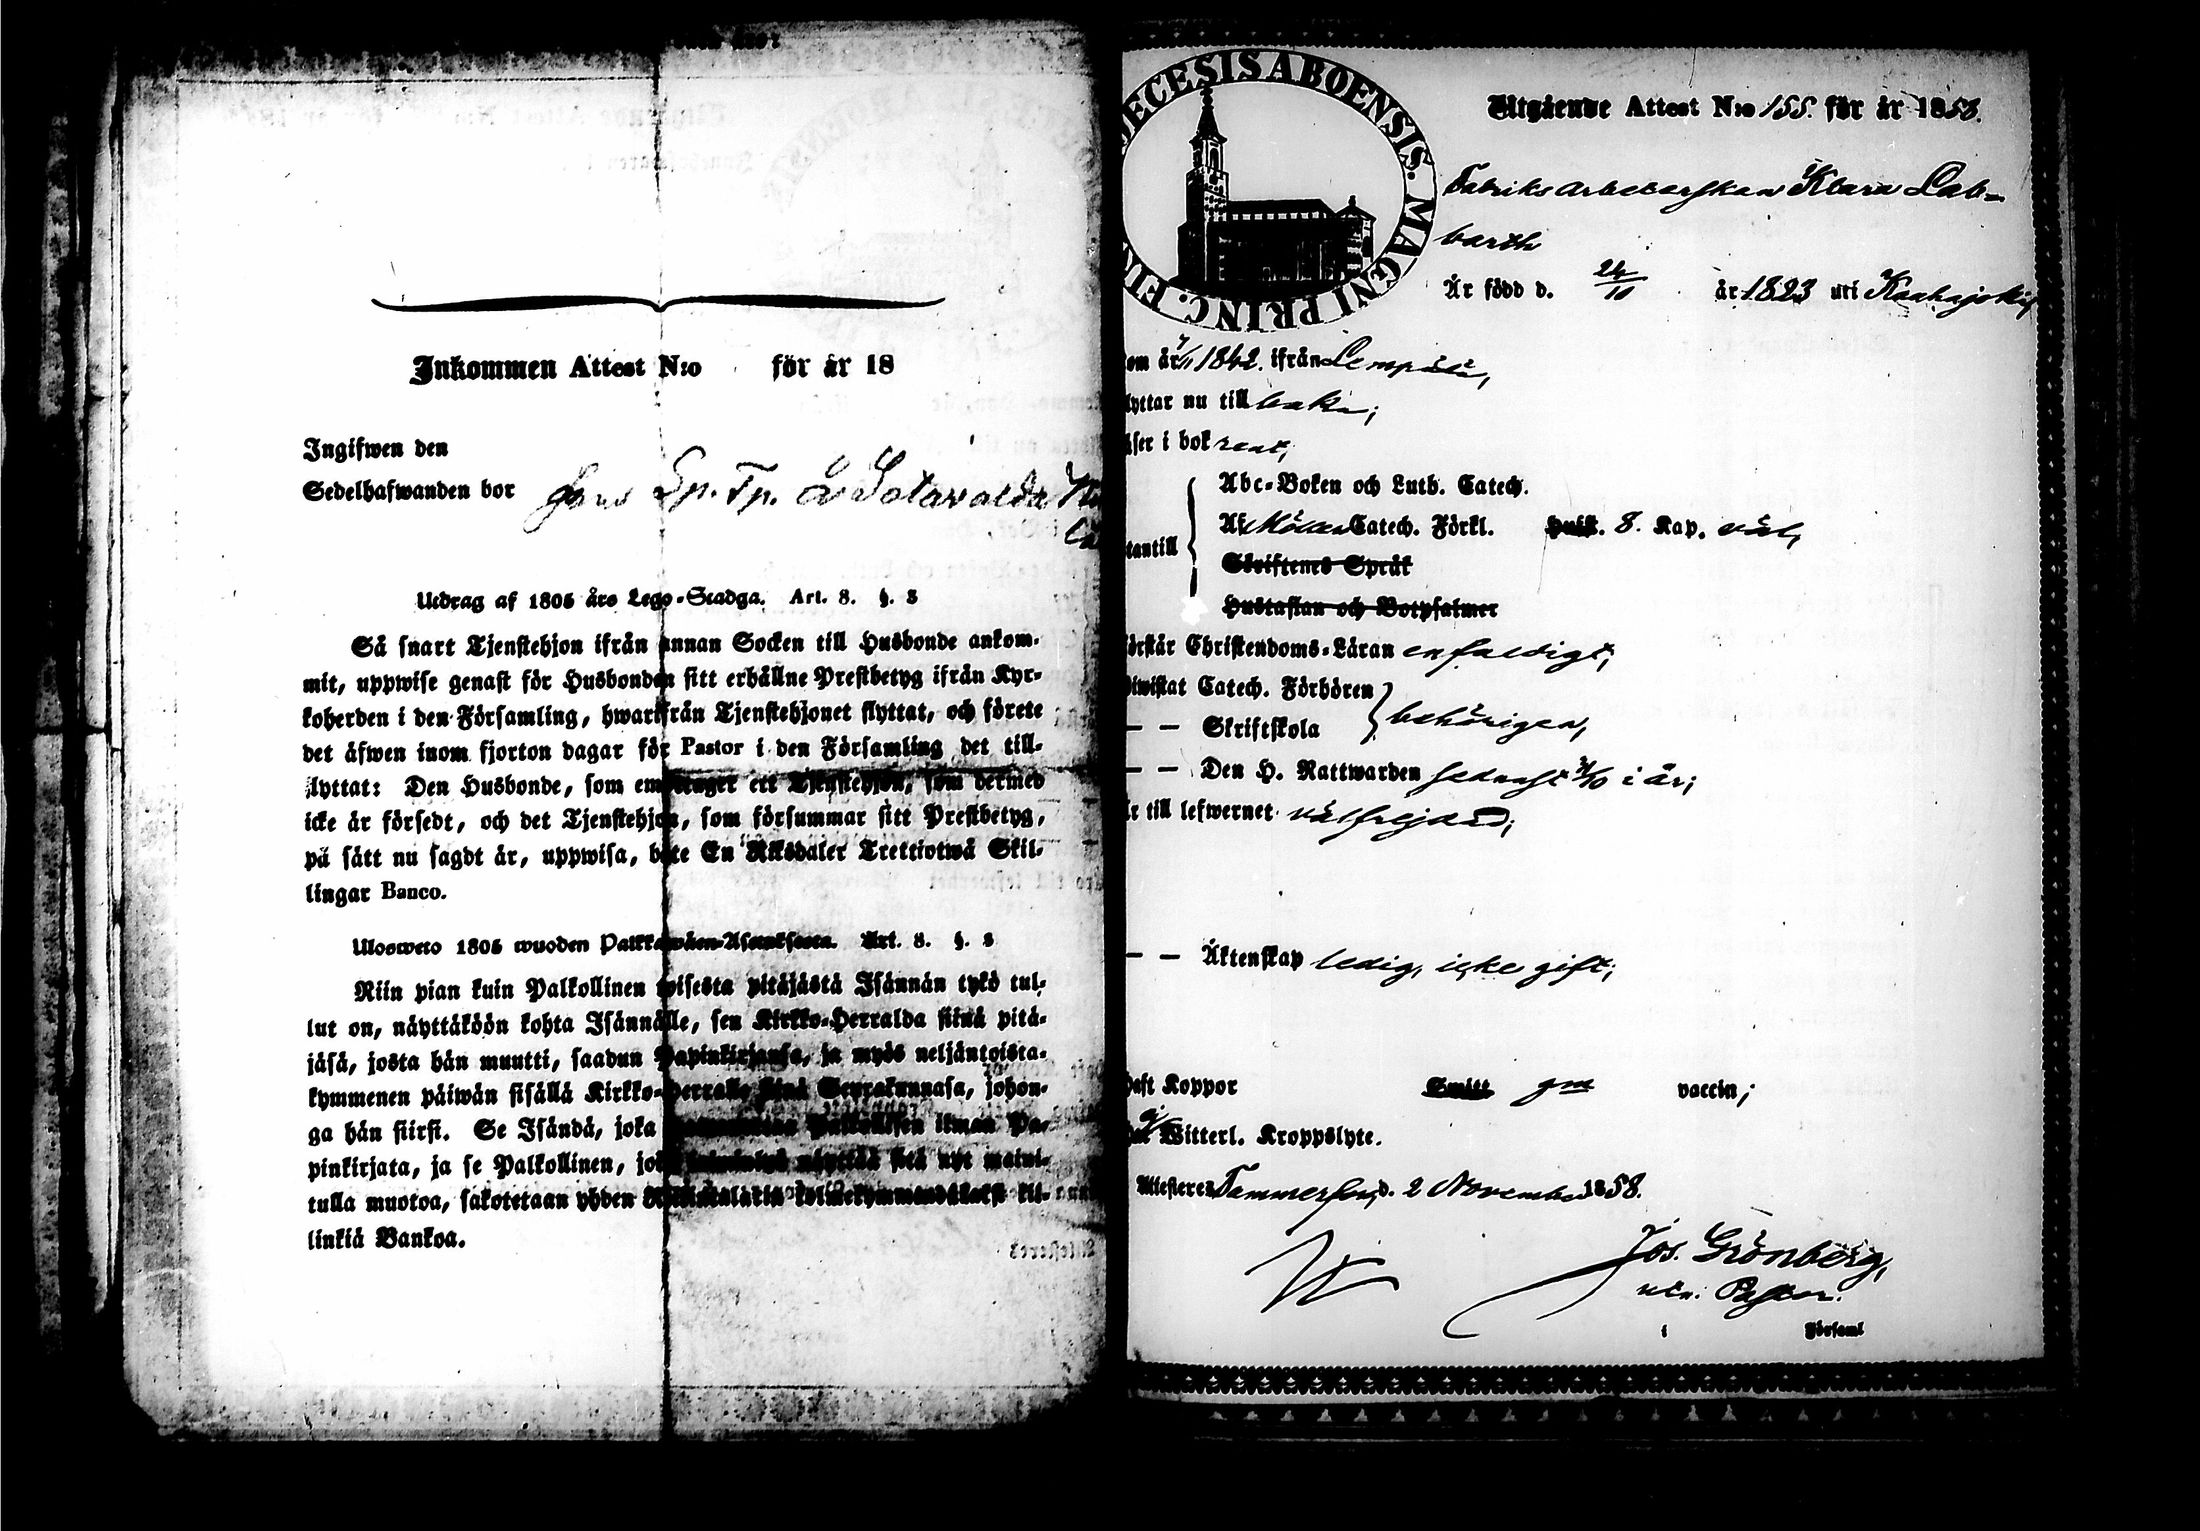 Inkommen Attest N:o för år 18
Ingifwen den
Sedelhafwanden bor hos Sotavalda
Utdrag af 1805 års Lego-Stadga. Art. 8. §. 3
Så snart Tjenstehjon ifrån annan Socken till Husbonde ankom-
mit, uppwise genast för Husbonden sitt erhållne Prestbetyg ifrån Kyr-
koherden i den Församling, hwarifrån Tjenstehjonet flyttat, och förete
det äfwen inom fjorton dagar för Pastor i den Församling det till-
flyttat: Den Husbonde, som emottager ett Tjenstehjon, som dermed
icke är försedt, och det Tjenstehjon, som försummar sitt Prestbetyg,
på sätt nu sagdt är, uppwisa, böte En Riksdaler Trettiotwå Skil-
lingar Banco.
Ulosweto 1805 wuoden Palkkawäen-Asetuksesta. Art. 8. §. 3
Niin pian kuin Palkollinen toisesta pitäjästä Isännän tykö tul-
lut on, näyttäköön kohta Isännälle, sen Kirkko-Herralda siinä pitä-
jäsä, josta hän muutti, saadun Papinkirjansa, ja myös neljäntoista-
kymmenen päiwän sisällä Kirkko-Herralle siinä Seurakunnasa, johon-
ga hän siirsi. Se Isändä, joka Palkollisen ilman Pa-
pinkirjata, ja se Palkollinen, joka näyttää sitä nyt maini-
tulla muotoa, sakotetaan yhden Riikintalarin kolmekymmendäkaksi kil-
linkiä Bankoa.
DIECESIS ABOENSIS. MAGNI PRINC. FIN
Utgående Attest N:o 155. för år 1858.
Fabriks arbeterskan Klara Lab-
barth
Är född d. 24/10 år 1823 uti Kankajoki,
om år 1/11 1842. ifrån Lempälä,
lyttar nu till bake;
äser i bok rent,
tantill
Abc-Boken och Luth. Catech.
Af Möllers Catech. Förkl. Hust. 8. Kap. väl,
Skriftenes Språk
Hustaflan och Botpsalmer
örstår Christendoms-Läran enfaldigt;
biwistat Catech. Förhören
— — Skriftskola behörigen,
— — Den H. Nattwarden sednast 31/10 i år;
r till lefwernet välfrejdad;
— — Äktenskap ledig, icke gift;
haft Koppor Smitt gm vaccin;
ej Witterl. Kroppslyte.
Attesteres Tammerfors, d. 2 November 1858.
Jos. Grönberg,
vice Pastor.
i Församl